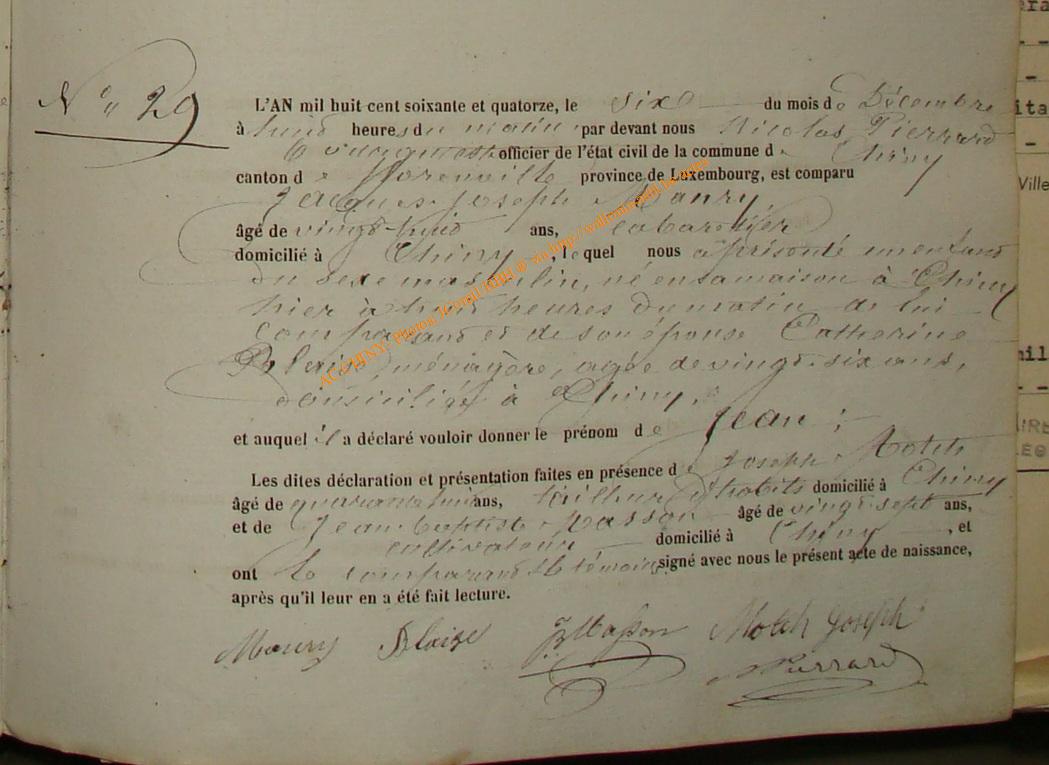 N° 29
L'AN mil huit cent soixante et quatorze, le six du mois de Décembre
à huit heures du matin, par devant nous Nicolas Pierrard
Bourgmestre officier de l'état civil de la commune de Chiny
canton de Florenville province de Luxembourg, est comparu
Jacques Joseph Maury,
âgé de vingt-huit ans, cabaretier
domicilié à Chiny, lequel nous a présenté un enfant
du sexe masculin, né en sa maison à Chiny
hier à huit heures du matin de lui
comparant et de son épouse Catherine
Blaise, ménagère, agée de vingt-six ans,
domiciliée à Chiny,
et auquel il a déclaré vouloir donner le prénom de Jean;
Les dites déclaration et présentation faites en présence de Joseph Motch
âgé de quarante huit ans, tailleur d'habits domicilié à Chiny
et de Jean-Baptiste Masson âgé de vingt sept ans,
cultivateur domicilié à Chiny, et
ont le comparant & les témoins signé avec nous le présent acte de naissance,
après qu'il leur en a été fait lecture.
Maury Blaise JB Masson Motch Joseph
N Pierrard